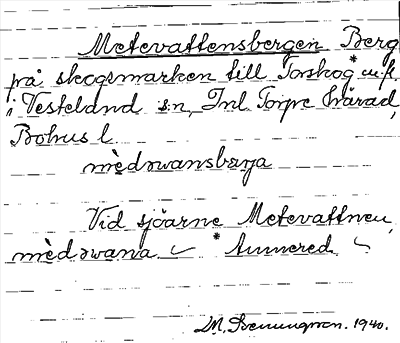 Metevattensbergen Berg
på skogsmarken till Torskog* m.fl.
i Vesterlanda sn, Inl Torpe härad,
Bohus l.
mèdəwansbærja
Vid sjöarne Metevattnen,
mèdəwana ✓ * Annered ✓
1940.